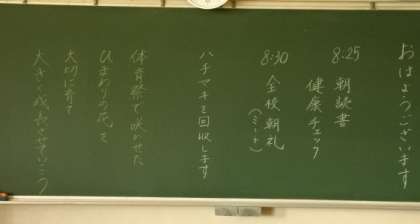 おはようございます
8:25 朝読書
健康チェック
8:30 全校朝礼
ハチマキを回収します
体育祭で咲かせた
ひまわりの花を
大切に育て
大きく成長させていこう